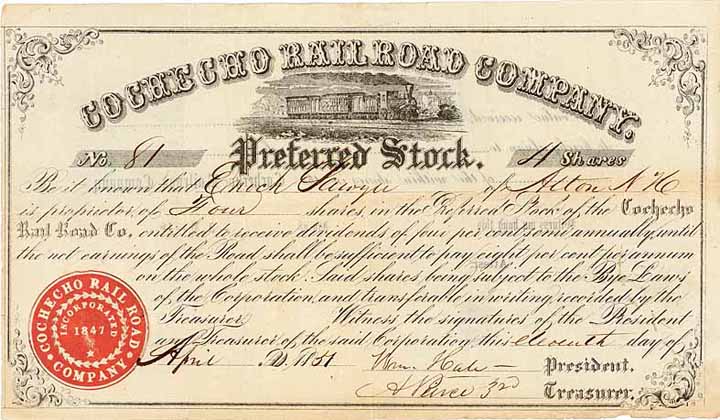 COCHECHO RAIL ROAD COMPANY.
No. 81 Preferred Stock. 4 Shares
Be it known that Enoch Sawyer of Alton N H
is proprietor of Four shares, in the Preferred Stock of the Cochecho
Rail Road Co. entitled to receive dividends of four per cent, semi annually, until
the net earnings of the Road shall be sufficient to pay eight per cent per annum
on the whole stock. Said shares, being subject to the Bye Laws
of the Corporation, and transferable in writing, recorded by the
Treasurer Witness the signatures of the President
and Treasurer of the said Corporation, this eleventh day of
April A.D. 1851 Wm. Hale President.
A Pierce 3rd Treasurer.
COCHECHO RAIL ROAD COMPANY.
INCORPORATED
1847